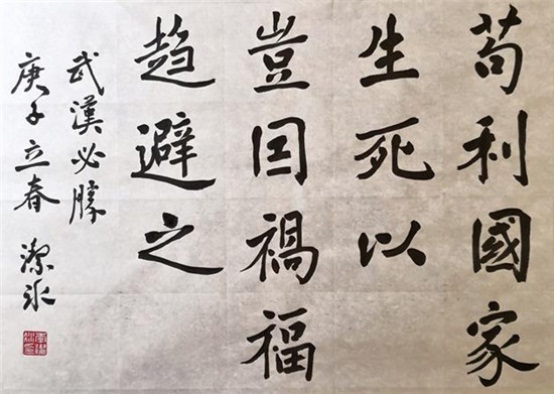 苟利國家
生死以
豈因禍福
趋避之
武漢必勝
庚子立春 潔冰